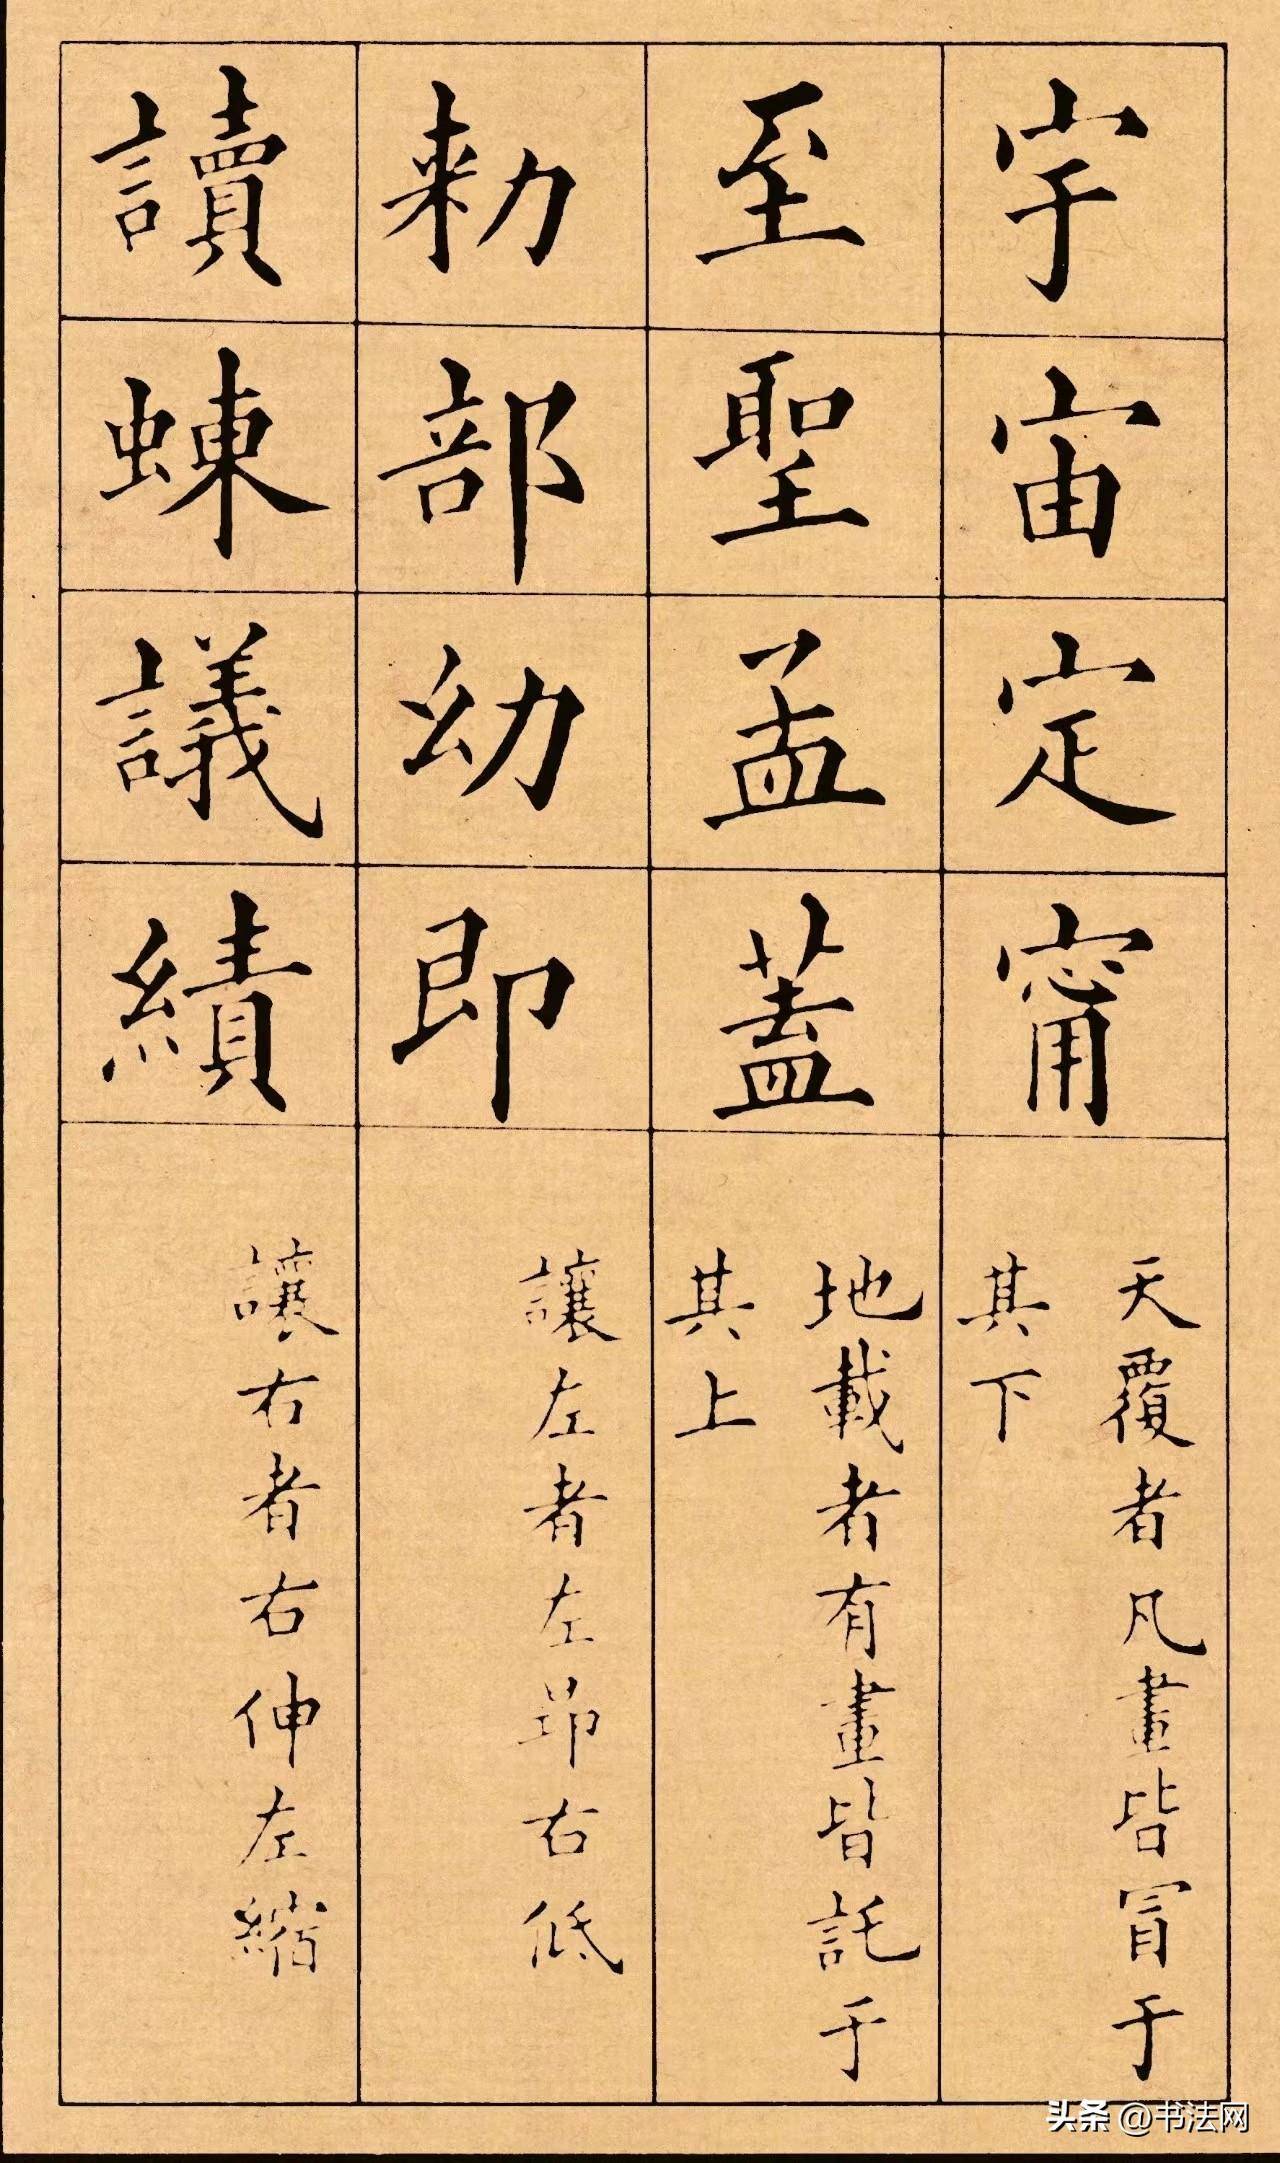 宇宙定甯
天覆者凡畫皆冒于
其下
至聖孟蓋
地載者有畫皆託于
其上
勑部幼即
讓左者左昂右低
讀蝀議績
讓右者右伸左縮
头条 @书法网